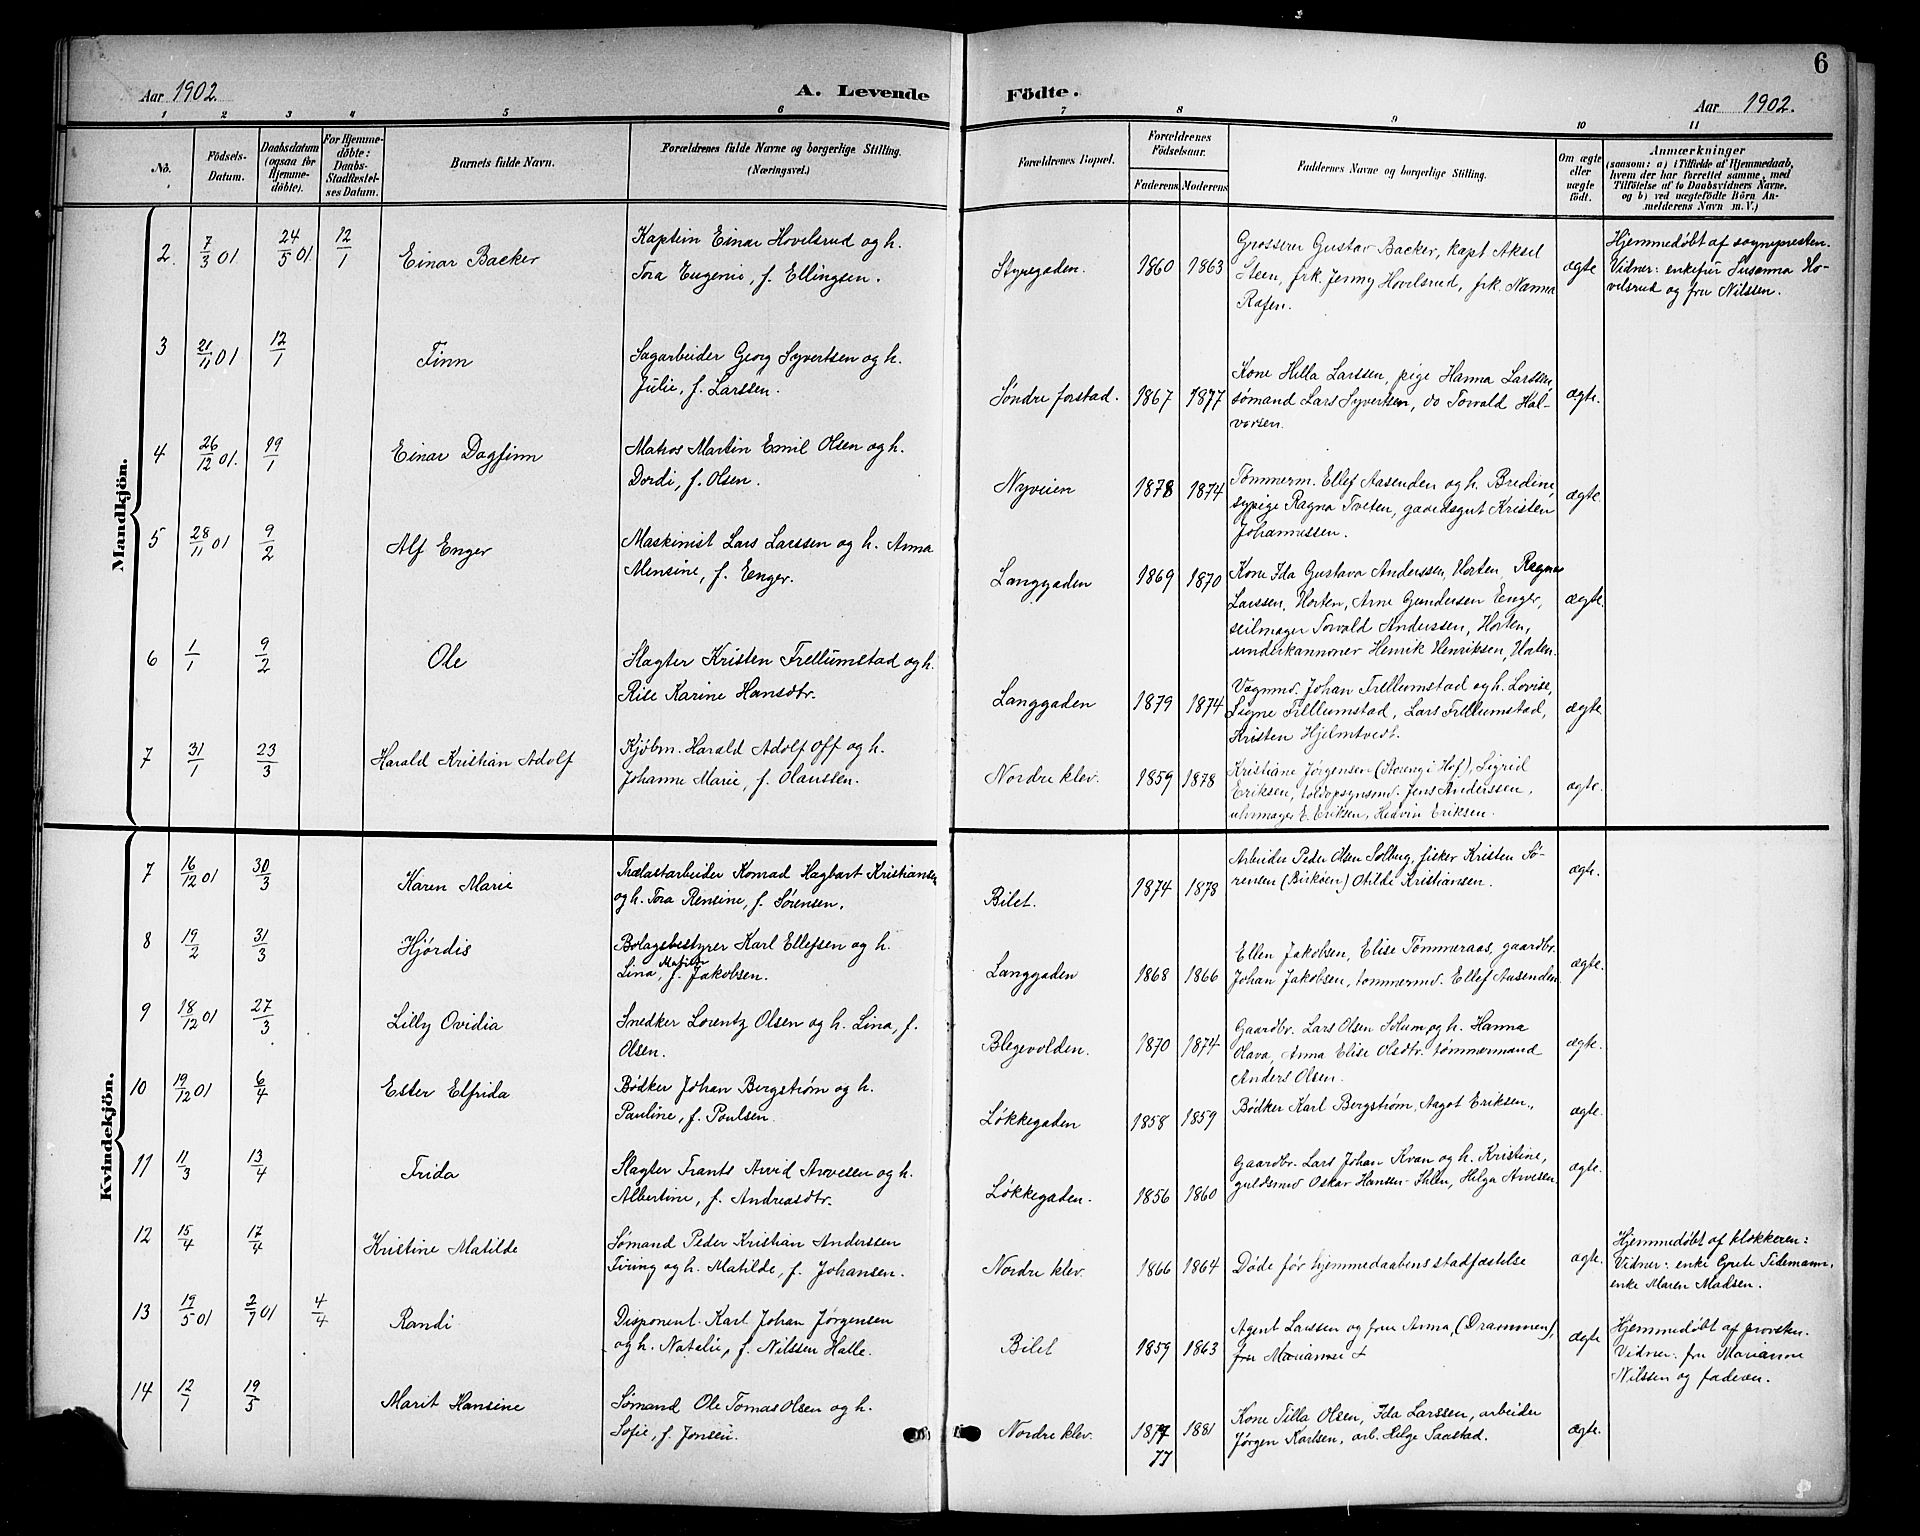 6
Aar 1902.
A. Levende
Födte.
Aar 1902.
1 2 3 4 5 6 7 8 9 10 11
No.
Födsels-
Datum.
Daabsdatum
(ogsaa för
Hjemme-
döbte).
For Hjemme-
döbte:
Daabs-
Stadfæstel-
ses Datum.
Barnets fulde Navn.
Forældrenes fulde Navne og borgerlige Stilling.
(Næringsvei.)
Forældrenes Bopæl.
Forældrenes
Födselsaar.
Faderens Moderens
Faddernes Navne og borgerlige Stilling.
Om ægte
eller
uægte
födt.
Anmærkninger
(saasom: a) i Tilfælde af Hjemmedaab,
hvem der har forrettet samme, med
Tilföielse af to Daabsvidners Navne.
og b) ved uægtefödte Börn An-
melderens Navn m. V.)
Mandkjön.
2. 7/3 01 24/5 01 12/1 Einar Backer
Kaptein Einar Hovelsrud og h.
Tora Eugenie, f. Ellingsen.
Styregaden. 1860 1863
Grosserer Gustav Backer, kapt Aksel
Steen, frk. Jenny Hovelsrud, frk. Nanna
Rafen.
ægte
Hjemmedøbt af sognepresten.
Vidner: enkefru Susanna Ho-
velsrud og fru Nilssen.
3 21/11 01 12/1 Finn
Sagarbeider Georg Syvertsen og h.
Julie, f. Larssen.
Søndre forstad. 1867 1877
Kone Hilla Larssen, pige Hanna Larssen,
sømand Lars Syvertsen, do Torvald Hal-
vorsen.
ægte.
4 26/12 01. 19/1 Einar Dagfinn
Matros Martin Emil Olsen og h.
Dordi, f. Olsen.
Nyveien 1878 1874
Tømmerm. Ellef Aasenden og h. Bredine,
sypige Ragna Tveten, gaardsgut Kristen
Johannessen.
ægte.
5 28/11 01 9/2 Alf Enger
Maskinist Lars Larssen og h. Anna
Mensine, f. Enger.
Langgaden 1869 1870
Kone Ida Gustava Anderssen, Horten, Ragna
Larssen, Horten, Arne Gundersen Enger,
seilmager Torvald Anderssen, Horten,
underkannoner Henrik Henriksen, Horten.
ægte.
6 1/1 9/2 Ole
Slagter Kristen Frellumstad og h.
Rise Karine Hansdtr.
Langgaden 1879 1874
Vognmd. Johan Frellumstad og h. Lovise,
Signe Frellumstad, Lars Frellumstad,
Kristen Hjelmtvedt.
ægte
7 31/1 23/3 Harald Kristian Adolf
Kjøbm. Harald Adolf Off og h.
Johanne Marie, f. Olaussen.
Nordre klev. 1859 1878
Kristiane Jørgensen (Storeng i Hof), Sigrid
Eriksen, toldopsynsmd. Jens Anderssen,
uhrmager E. Eriksen, Hedvin Eriksen.
ægte.
Kvindekjön.
7 16/12 01 30/3 Karen Marie
Trælastarbeider Konrad Hagbart Kristiansen
og h. Tora Rensine, f. Sørensen.
Bilet. 1874 1878
Arbeider Peder Olsen Solberg, fisker Kristen Sø-
rensen (Birkøen) Otilde Kristiansen.
ægte.
8 19/2 31/3 Hjørdis
Bolagsbestyrer Karl Ellefsen og h.
Lina Matilde, f. Jakobsen.
Langgaden 1868 1866
Ellen Jakobsen, Elise Tømmeraas, gaardbr.
Johan Jakobsen, tømmermd. Ellef Aasenden
ægte.
9 18/12 01 27/3 Lilly Ovidia
Snedker Lorentz Olsen og h. Lina, f.
Olsen.
Blegevolden. 1870 1874
Gaardbr. Lars Olsen Solum og h. Hanna
Olava, Anna Elise Olsdtr. tømmermand
Anders Olsen.
ægte.
10 19/12 01 6/4 Ester Elfrida
Bødker Johan Bergstrøm og h.
Pauline, f. Poulsen.
Løkkegaden 1858 1859
Bødker Karl Bergstrøm, Aagot Eriksen.,
ægte.
11 11/3 13/4 Frida
Slagter Frants Arvid Arvesen og h.
Albertine, f. Andreasdtr.
Løkkegaden. 1856 1860
Gaardbr. Lars Johan Kvan og h. Kristine,
guldsmed Oskar Hansen-Ihlen, Helga Arvesen.
ægte.
12 15/4 17/4 Kristine Matilde
Sømand Peder Kristian Anderssen
Firing og h. Matilde, f. Johansen.
Nordre klev. 1866 1864
Døde før hjemmedaabens stadfæstelse
ægte.
Hjemmedøbt af klokkeren:
Vidner: enke Grete Tidemann,
enke Maren Madsen.
13 19/5 01 2/7 01 4/4 Randi
Disponent Karl Johan Jørgensen
og h. Natalie, f. Nilssen Halle.
Bilet 1859 1863
Agent Larssen og fru Anna, (Drammen),
fru Marianne +
ægte
Hjemmedøbt af provsten.
Vidner: fru Marianne
Nilssen og faderen.
14 12/1 19/5 Marit Hansine
Sømand Ole Tomas Olsen og h.
Sofie, f. Jonsen.
Nordre klev. 1877 1881
77
Kone Tilla Olsen, Ida Larssen, arbeider
Jørgen Karlsen, arb. Helge Saastad.
ægte.